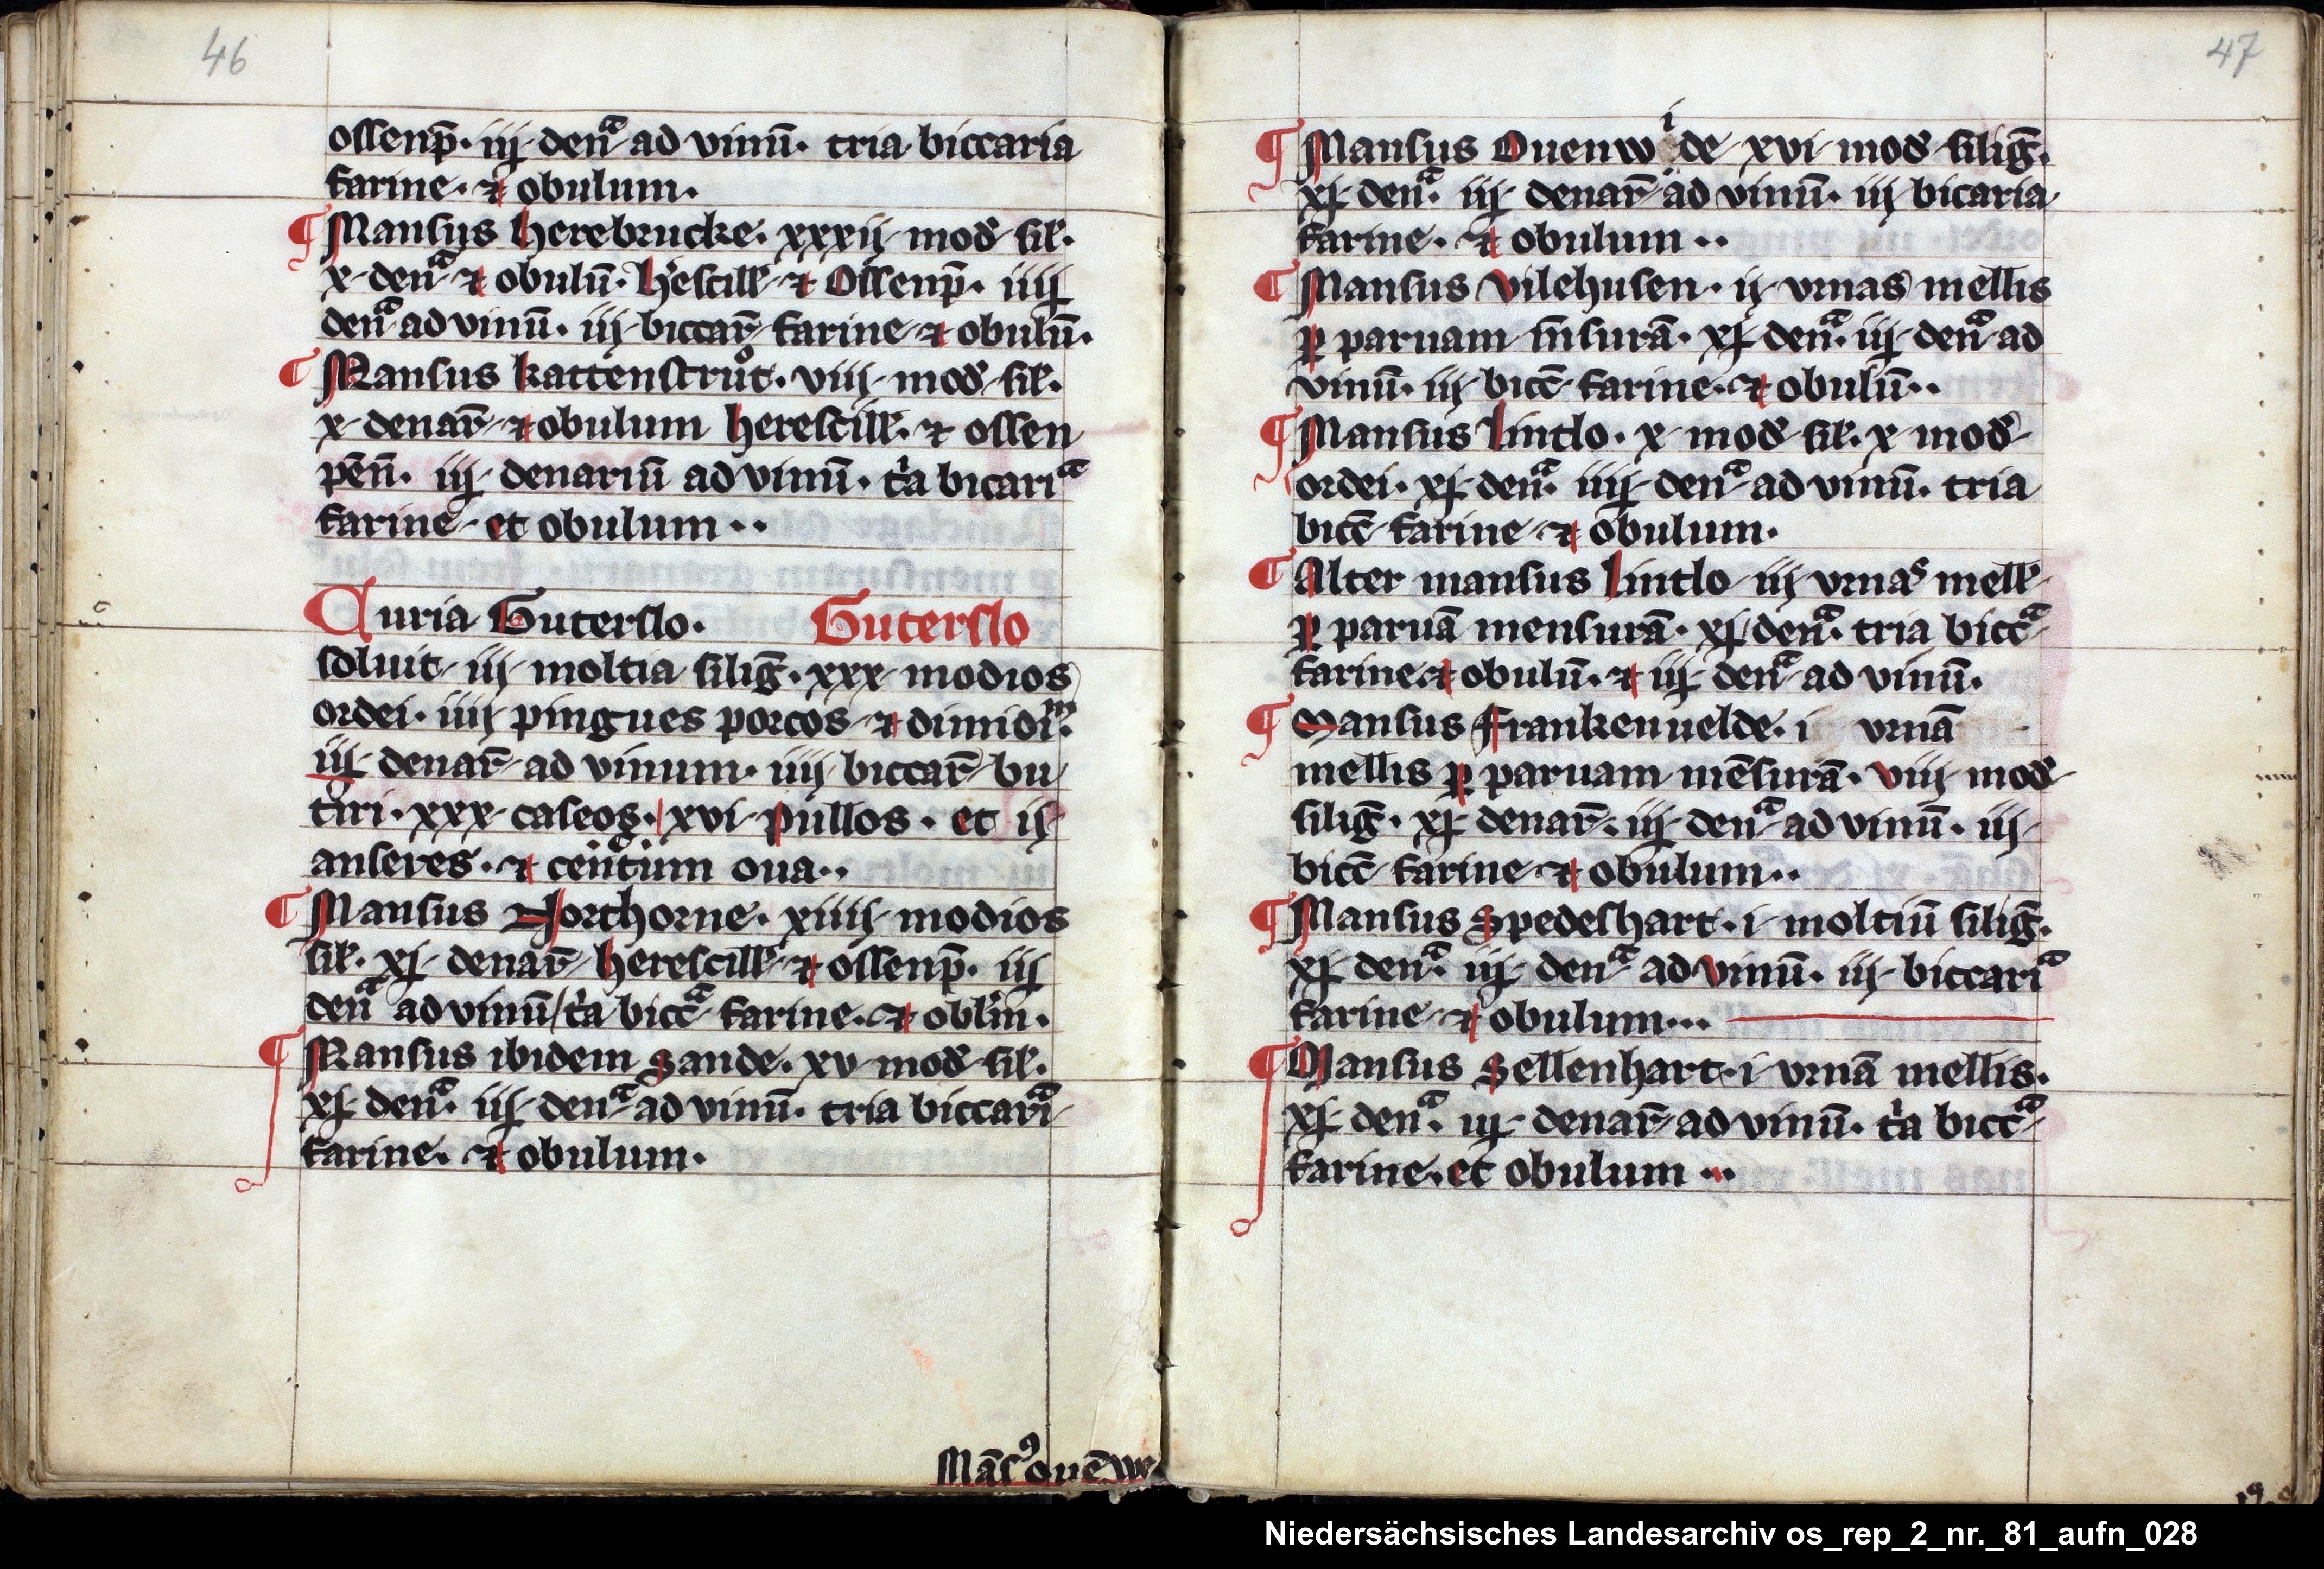 46
ossenp̄. iiį denͣ ad vinū. tria biccaria
farine. ⁊ obulum.
¶ Mansus herebrucke. xxxii mod sil.
x denͣ ⁊ obulū. h'escill ⁊ Ossenp̄. iiiį
denͣ ad vinū. iii biccar̄ farine ⁊ obulū.
¶ Mansus kattenstruͦt. viii mod sil.
x denar̄ ⁊ obulum herescill. ⁊ ossen
pēn̄. iiį denariū ad vinū. t'a bicariͣ
farine et obulum..
Curia Guterslo. Guterslo
soluit iii moltia siliḡ. xxx modios
ordei. iiii pingues porcos ⁊ dimidiͫ.
iiį denar̄ ad vinum. iiii biccar̄ bu
tiri. xxx caseos. xvi pullos. et ii
anseres. ⁊ centum oua..
¶ Mansus Northorne. xiiii modios
sil. xį denar̄ herescill ⁊ ossenp̄. iiį
denͣ ad vinū t'a biccͣ farine. ⁊ obl'm.
¶ Mansus ibidem Sande. xv mod sil.
xį denͣ. iiį denͣ ad vinū. tria biccariͣ
farine. ⁊ obulum.
Māsꝰ ouēwe
47
¶ Mansus Ouenwide xvi mod siliḡ.
xį denͣ. iiį denar̄ ad vinū. iii bicaria
farine. ⁊ obulum..
¶ Mansus Vilehusen. ii vrnas mellis
ꝑ paruam m̄surā. xį denͣ. iiį denͣ ad
vinū. iii bicc̄ farine. ⁊ obulū..
¶ Mansus Lintlo. x mod sil. x mod
ordei. xį denͣ. iiiį denͣ ad vinū. tria
bicc̄ farine ⁊ obulum.
¶ Alter mansus Lintlo iii vrnas mell
ꝑ paruā mensurā. xį denͣ. tria biccͣ
farine ⁊ obulū. ⁊ iiį denͣ ad vinū.
¶ Mansus Frankenuelde. i vrnā
mellis ꝑ paruam mēsurā. viii mod
siliḡ. xį denar̄. iiį denͣ ad vinū. iii
bicc̄ farine ⁊ obulum..
¶ Mansus Spedeshart. i moltiū siliḡ.
xį denͣ. iiį denͣ ad vinū. iii biccariͣ
farine ⁊ obulum...
¶ Mansus Sellenhart. i vrnā mellis.
xį denͣ. iiį denar̄ ad vinū. t'a biccͣ
farine. et obulum ..
Niedersächsisches Landesarchiv os_rep_2_nr._81_aufn_028